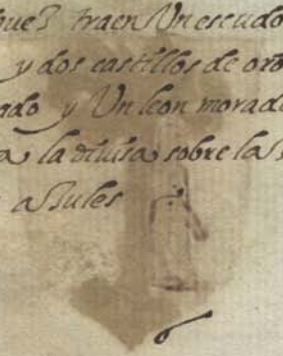 traen Un escudo
y dos castillos de oro
ado y Un leon morado
a la diuisa sobre la
asules